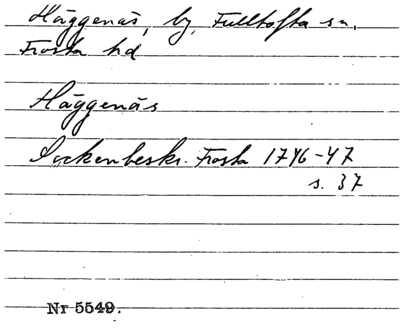 Häggenäs, by, Fulltofta sn.
Frosta hd
Häggenäs
Sockenbeskr. Frosta 1746-47
s. 37
Nr 5549.